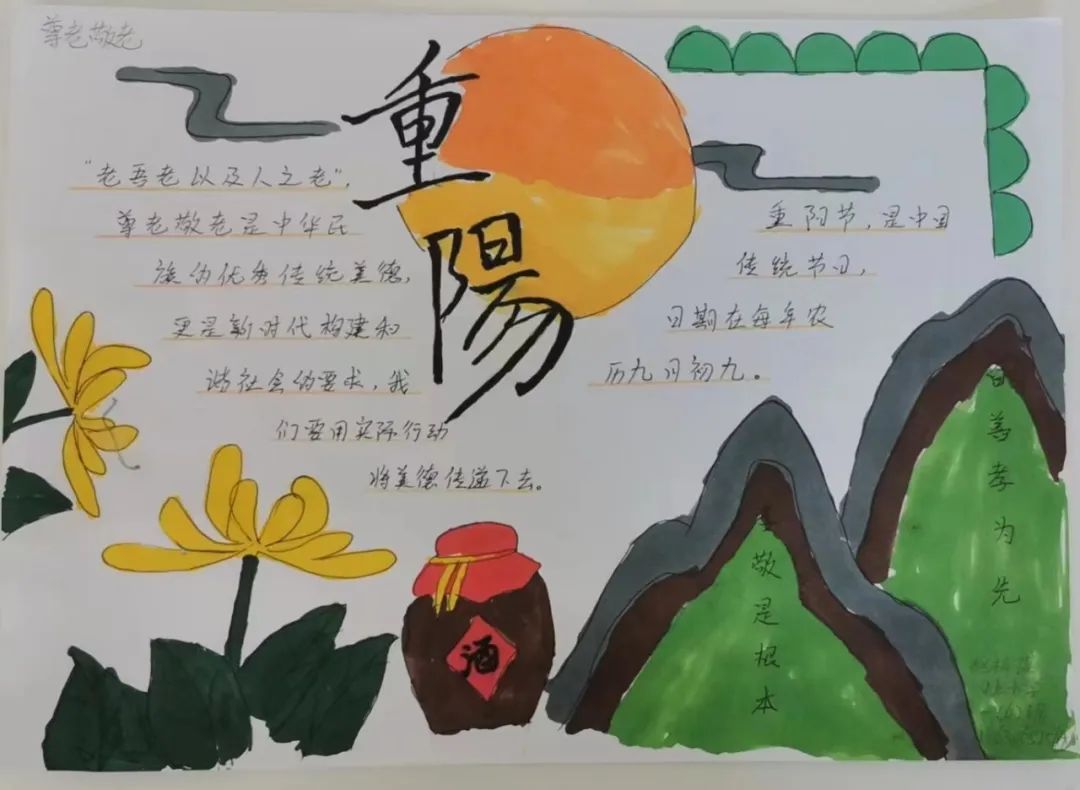 尊老敬老
重陽
"老吾老以及人之老",
尊老敬老是中华民
族的优秀传统美德,
更是新时代构建和
谐社会的要求,我
们要用实际行动
将美德传递下去。
重阳节,是中国
传统节日,
日期在每年农
历九月初九。
酒
敬是根本
百善孝为先